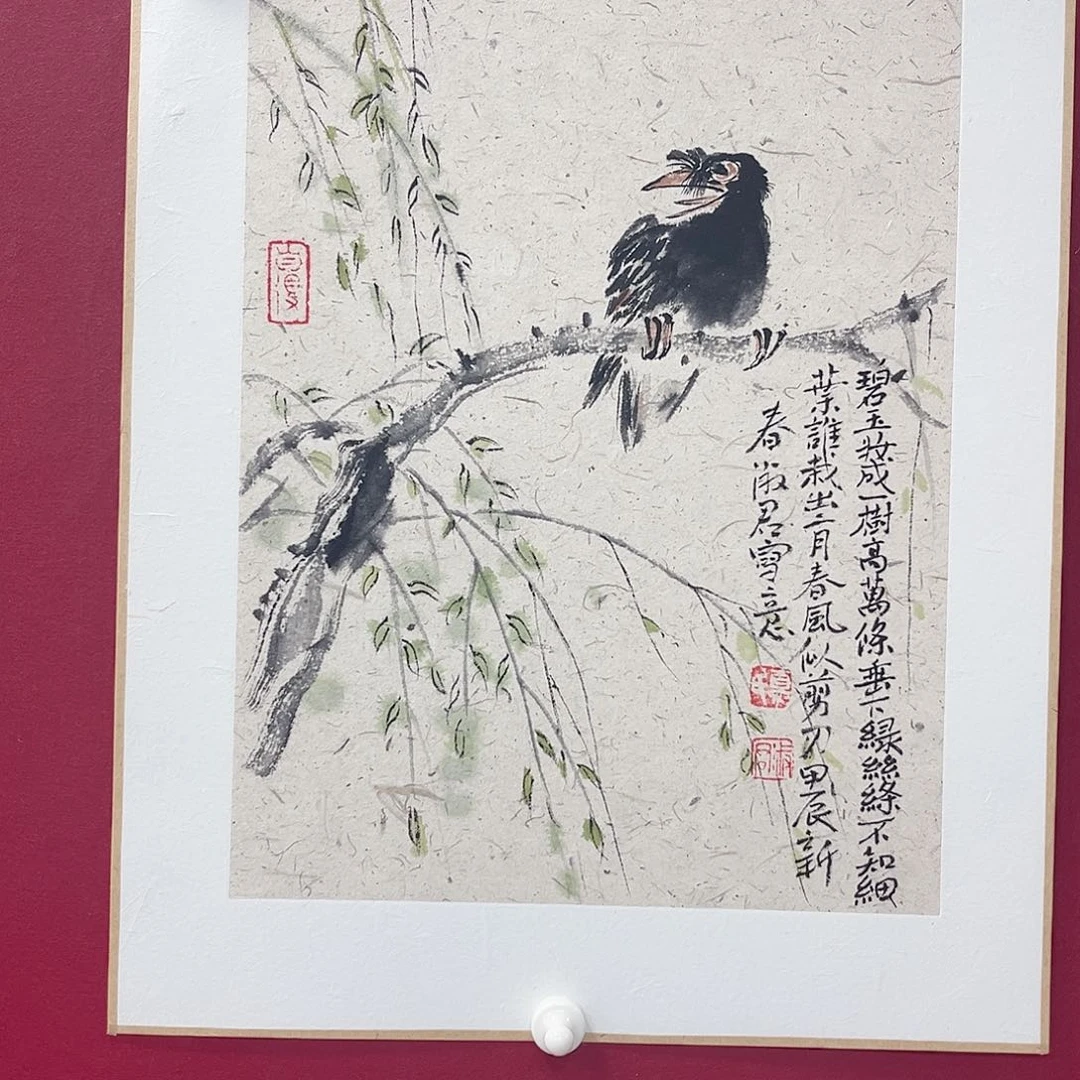 碧玉妝成一樹高萬條垂下緑絲縧不知細
葉誰裁出二月春風似剪刀甲辰新
春淑君寫意